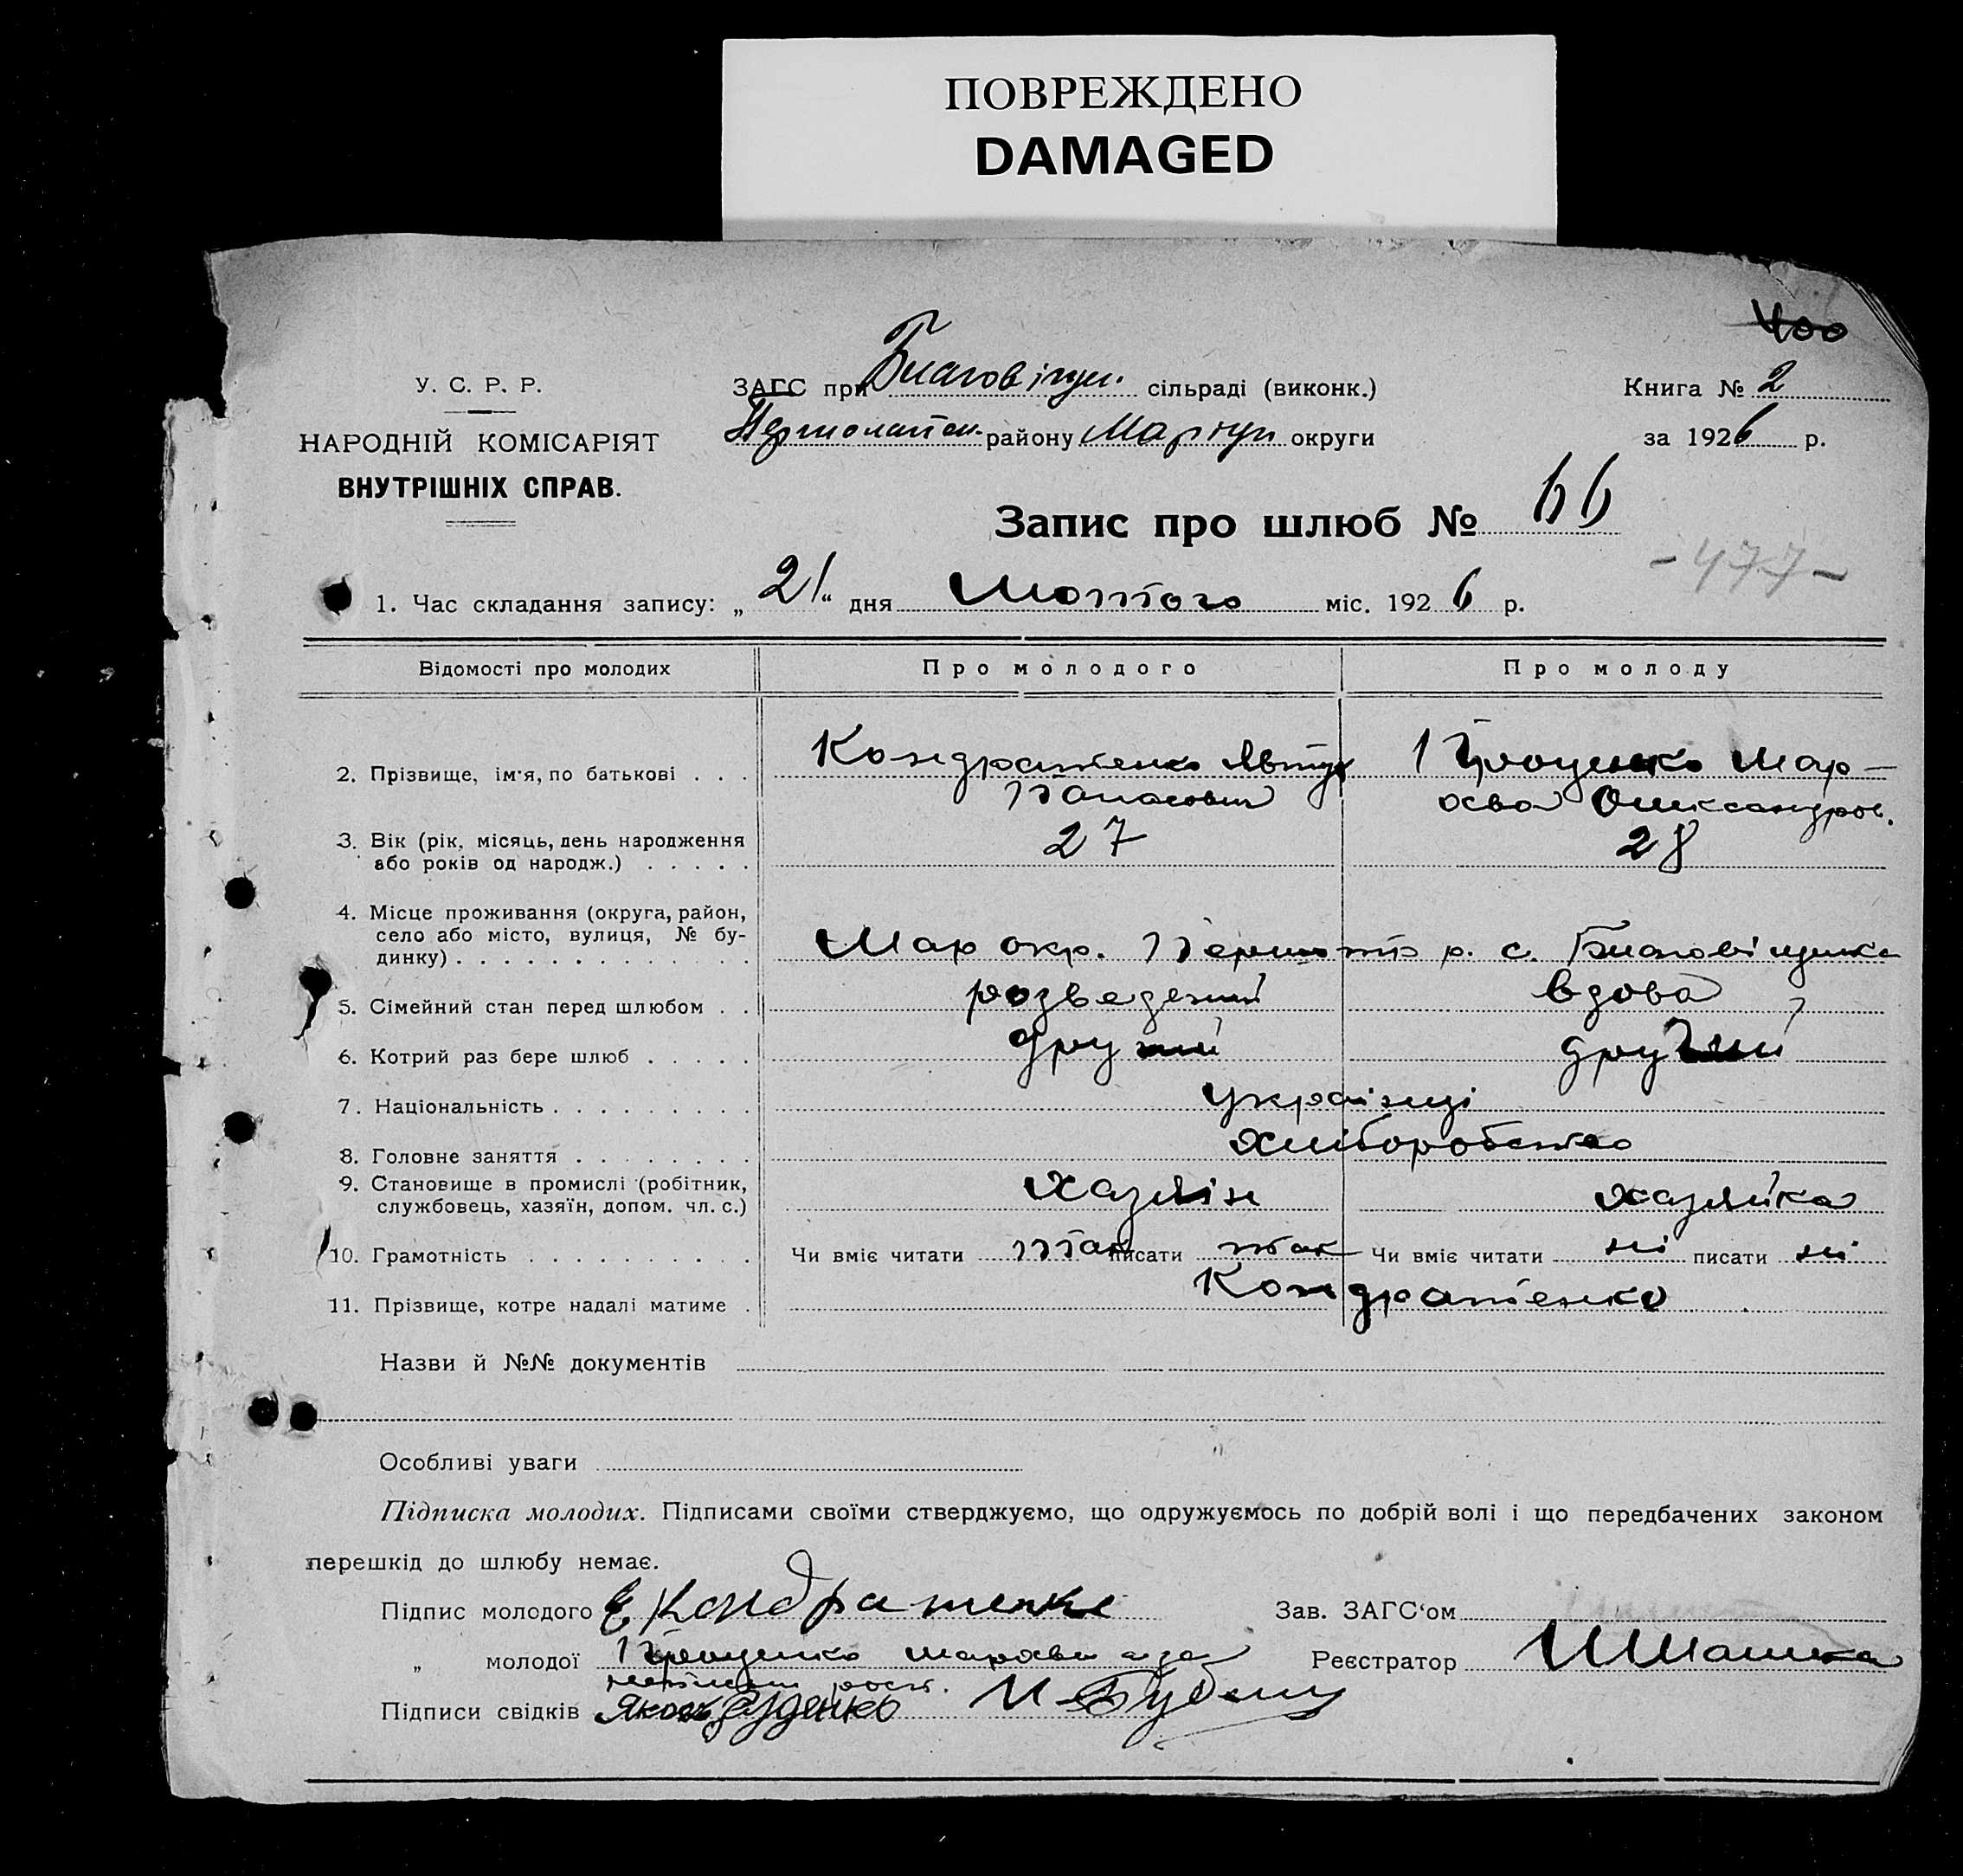 ПОВРЕЖДЕНО
DAMAGED
400
У. С. Р. Р.
НАРОДНІЙ КОМІСАРІЯТ
ВНУТРІШНІХ СПРАВ.
ЗАГС при Благовіщен. сільраді (виконк.)
району Маріуп округи
Книга № 2
за 1926 р.
Запис про шлюб № 66
-477-
1. Час складання запису: „21“ дня Лютого міс. 1926 р.
Відомості про молодих Про молодого Про молоду
2. Прізвище, ім'я, по батькові . . . Кондратенко Явтух Проценко Мар-
Панасович Олександров.
3. Вік (рік, місяць, день народження
або років од народж.) . . . . . 27 28
4. Місце проживання (округа, район,
село або місто, вулиця, № бу-
динку) . . . . . . . . . . . . . Мар окр. р. с. Благовіщенка
5. Сімейний стан перед шлюбом . . розведений вдова
6. Котрий раз бере шлюб . . . . . другий другий
7. Національність . . . . . . . . . українці
8. Головне заняття . . . . . . . . хліборобство
9. Становище в промислі (робітник,
службовець, хазяїн, допом. чл. с.) хазяїн хазяйка
10. Грамотність . . . . . . . . . . Чи вміє читати так писати так Чи вміє читати ні писати ні
11. Прізвище, котре надалі матиме . Кондратенко
Назви й №№ документів
Особливі уваги
Підписка молодих. Підписами своїми стверджуємо, що одружуємось по добрій волі і що передбачених законом
перешкід до шлюбу немає.
Підпис молодого Е Кондратенко Зав. ЗАГС‘ом
„ молодої Проценко Реєстратор
Підписи свідків